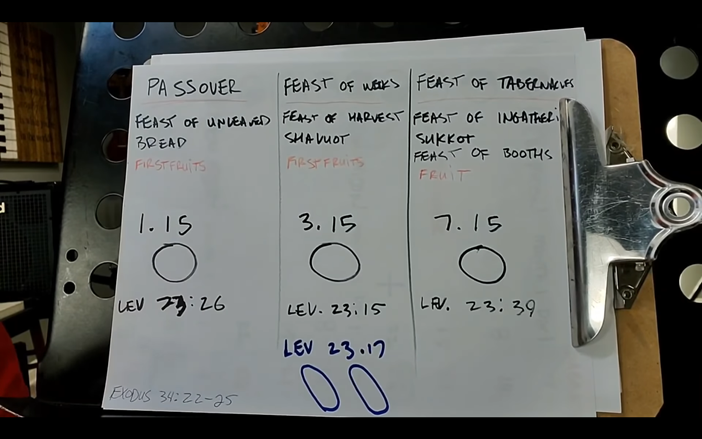 PASSOVER
FEAST OF UNLEAVED
BREAD
FIRSTFRUITS
1.15
LEV 23:26
FEAST OF WEEKS
FEAST OF HARVEST
SHAVUOT
FIRSTFRUITS
3.15
LEV. 23:15
LEV 23.17
FEAST OF TABERNACLES
FEAST OF INGATHERI
SUKKOT
FEAST OF BOOTHS
FRUIT
7.15
LEV. 23:39
EXODUS 34:22-25